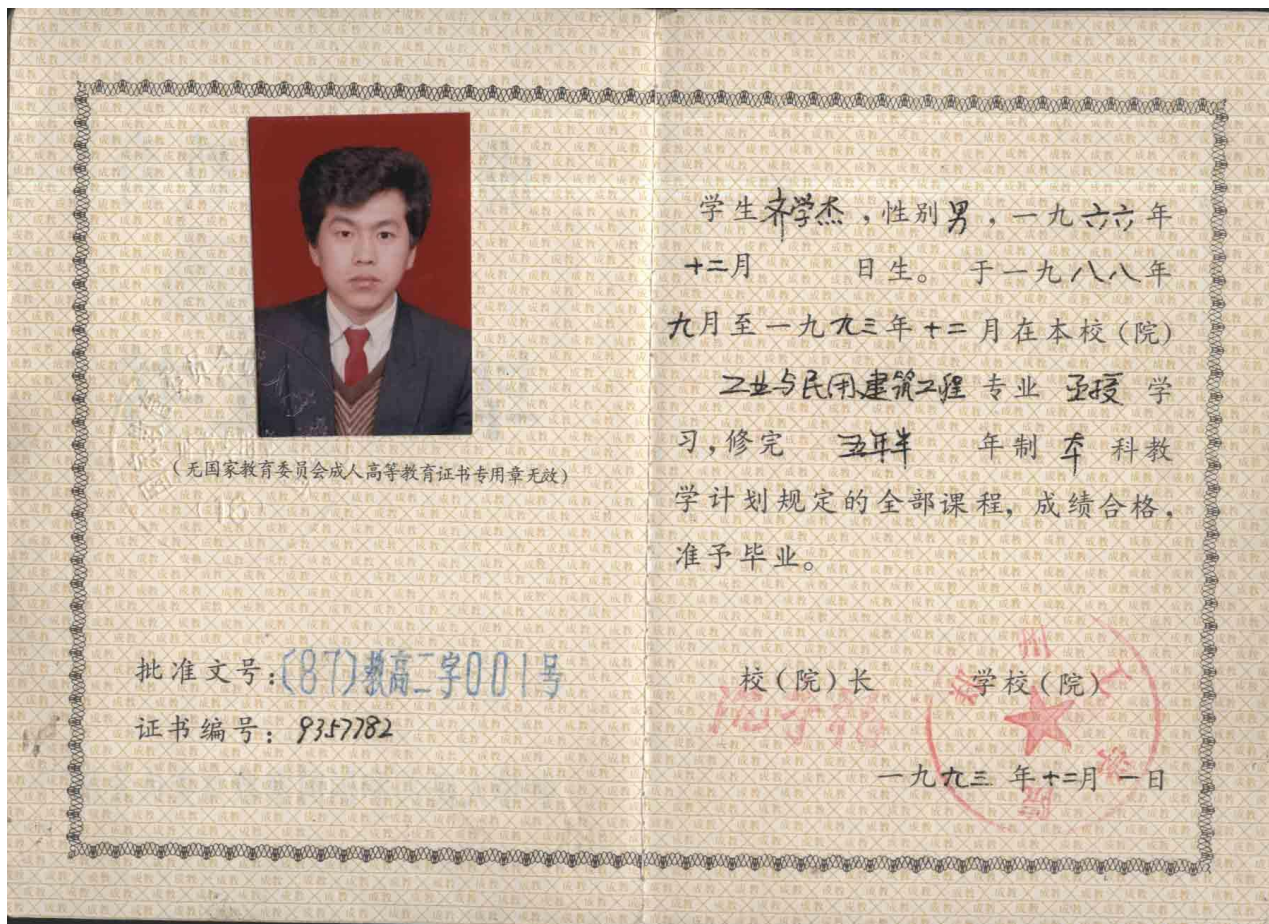 (无国家教育委员会成人高等教育证书专用章无效)
批准文号:(87)教高二字001号
证书编号:9357782
学生齐学杰,性别男,一九六六年
十二月 日生。 于一九八八年
九月至一九九三年十二月在本校(院)
工业与民用建筑工程 专业 函授 学
习,修完 五年半 年制 本 科教
学计划规定的全部课程,成绩合格,
准予毕业。
校(院)长 学校(院)
一九九三 年十二月 一日